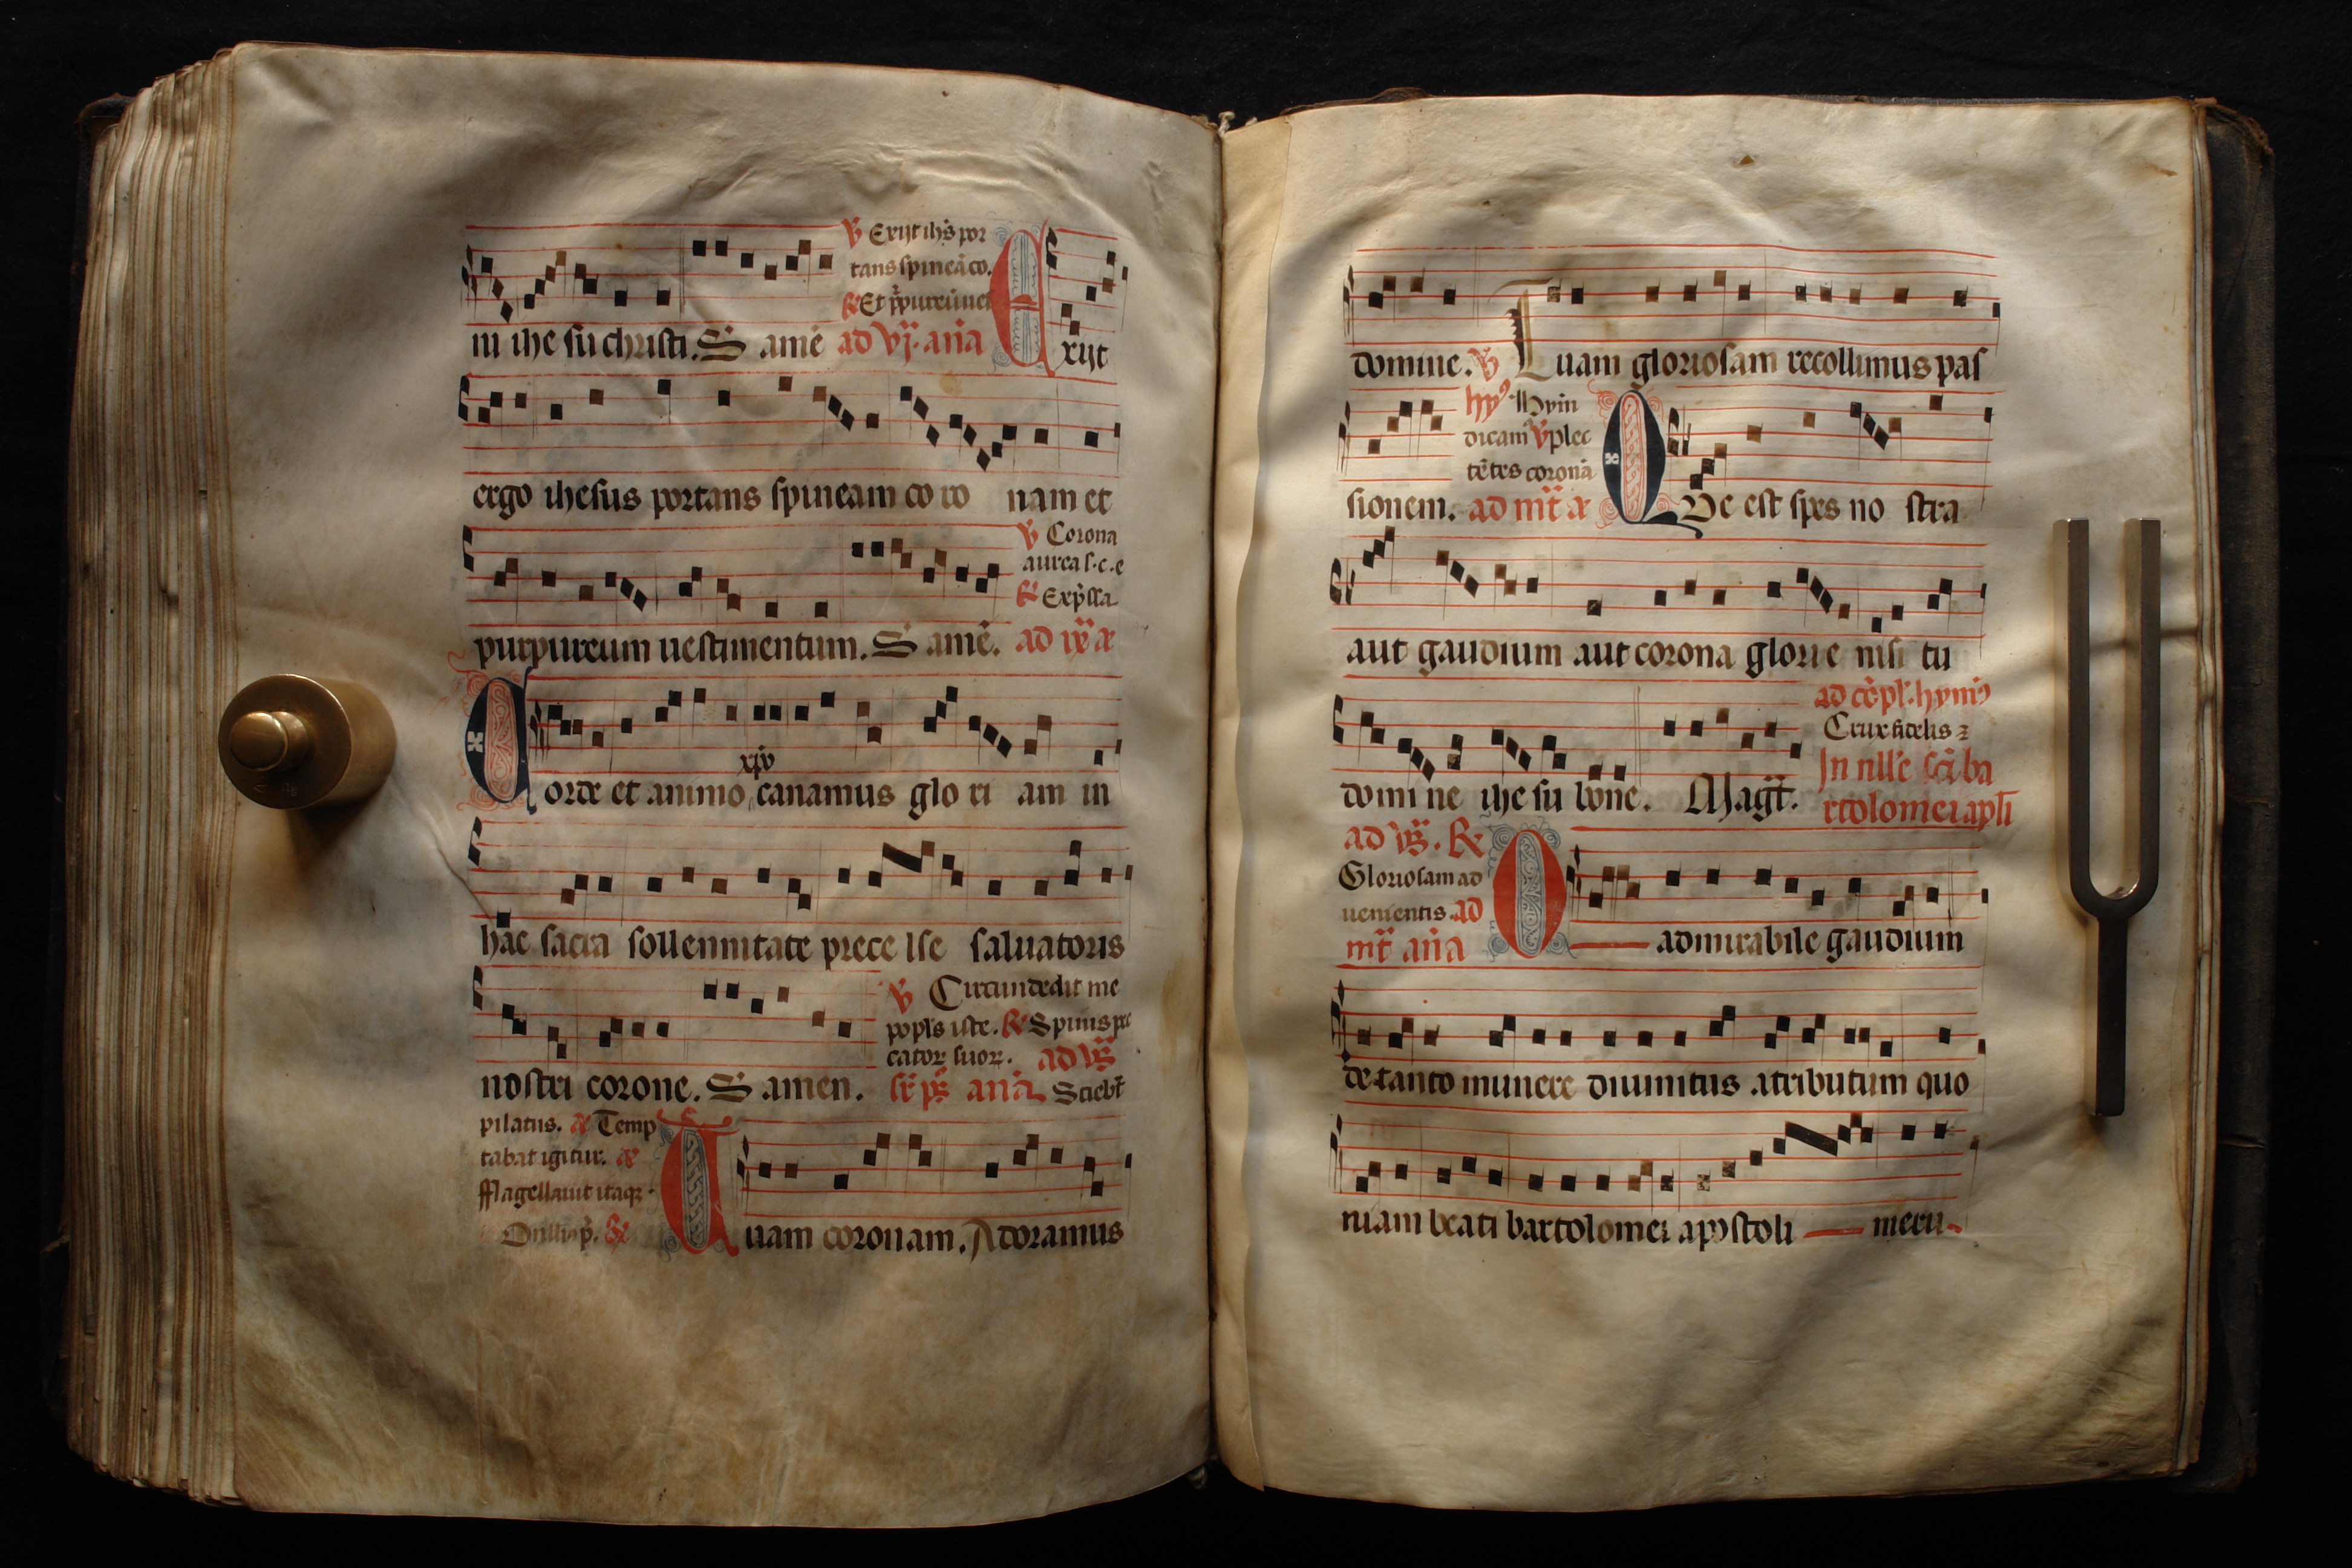 ℣ Exijt ihs̄ por
tans spineā co.
℟ Et p̄pureū ues
ni ihe su christi. S amē ad vj. an̄a Exijt
ergo ihesus portans spineam co ro nam et
℣ Corona
aurea s. c. e
℟ Exp̄ssa
purpureum uestimentum. S amē. ad ix̄ a
xpō
Corde et animo canamus glo ri am in
hac sacra sollennitate prece lse saluatoris
℣ Circundedit me
popl's iste. ℟ Spinis pec
cator suor. ad vs̄
nostri corone. S amen. an̄a Sciebt̄
pilatus. a Temp
tabat igitur. a
fflagellauit itaqz.
℟
Tuam coronam. Adoramus
domine. ℣ Tuam gloriosam recolimus pas
hy9 Hymn
dicam9 ℣ plec
tētes coronā
sionem. ad mt̄ a Que est spes no stra
aut gaudium aut corona glorie nisi tu
ad cōpl'. hymn9
Crux fidelis
domi ne ihe su bone. Magt̄. In nll'e scī ba
rtolomei apl'i
ad vs̄. ℟
Gloriosam ad
uenientis. ad
mt̄ an̄a O admirabile gaudium
de tanto munere diuinitus atributum quo
niam beati bartolomei apostoli meru